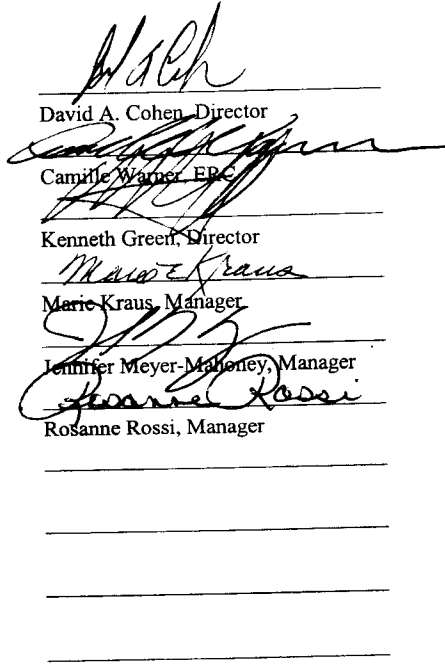 David A. Cohen, Director
Camille Warner, ERC
Kenneth Green, Director
Marie Kraus
Marie Kraus, Manager
Jennifer Meyer-Mahoney, Manager
Rosanne Rossi
Rosanne Rossi, Manager